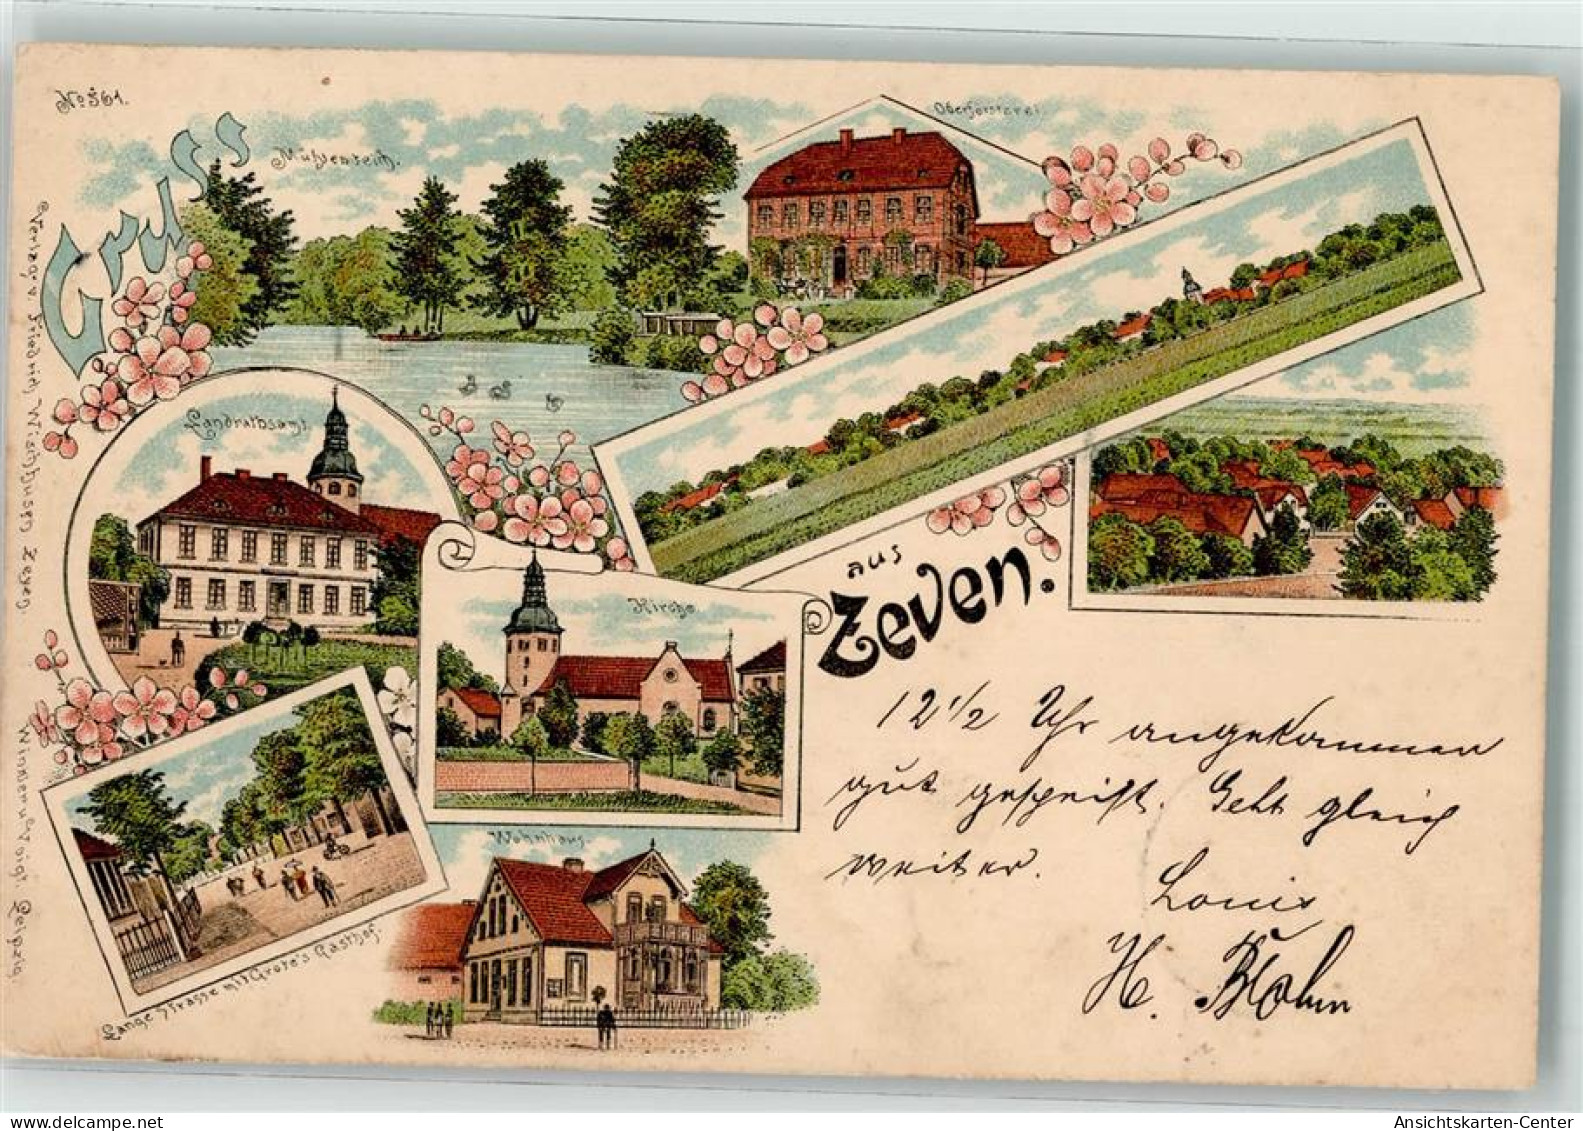 No 561.
Gruss
Mühlenteich.
Oberförsterei
Landrathsamt.
Kirche
aus
Zeven.
Wohnhaus
Lange Strasse mit Grote's Gasthof.
Verlag v. Friedrich Wischhusen Zeven.
Winkler u. Voigt Leipzig.
12 1/2 Uhr angekommen
gut gespeist. Geht gleich
weiter.
Louis
H.
Ansichtskarten-Center